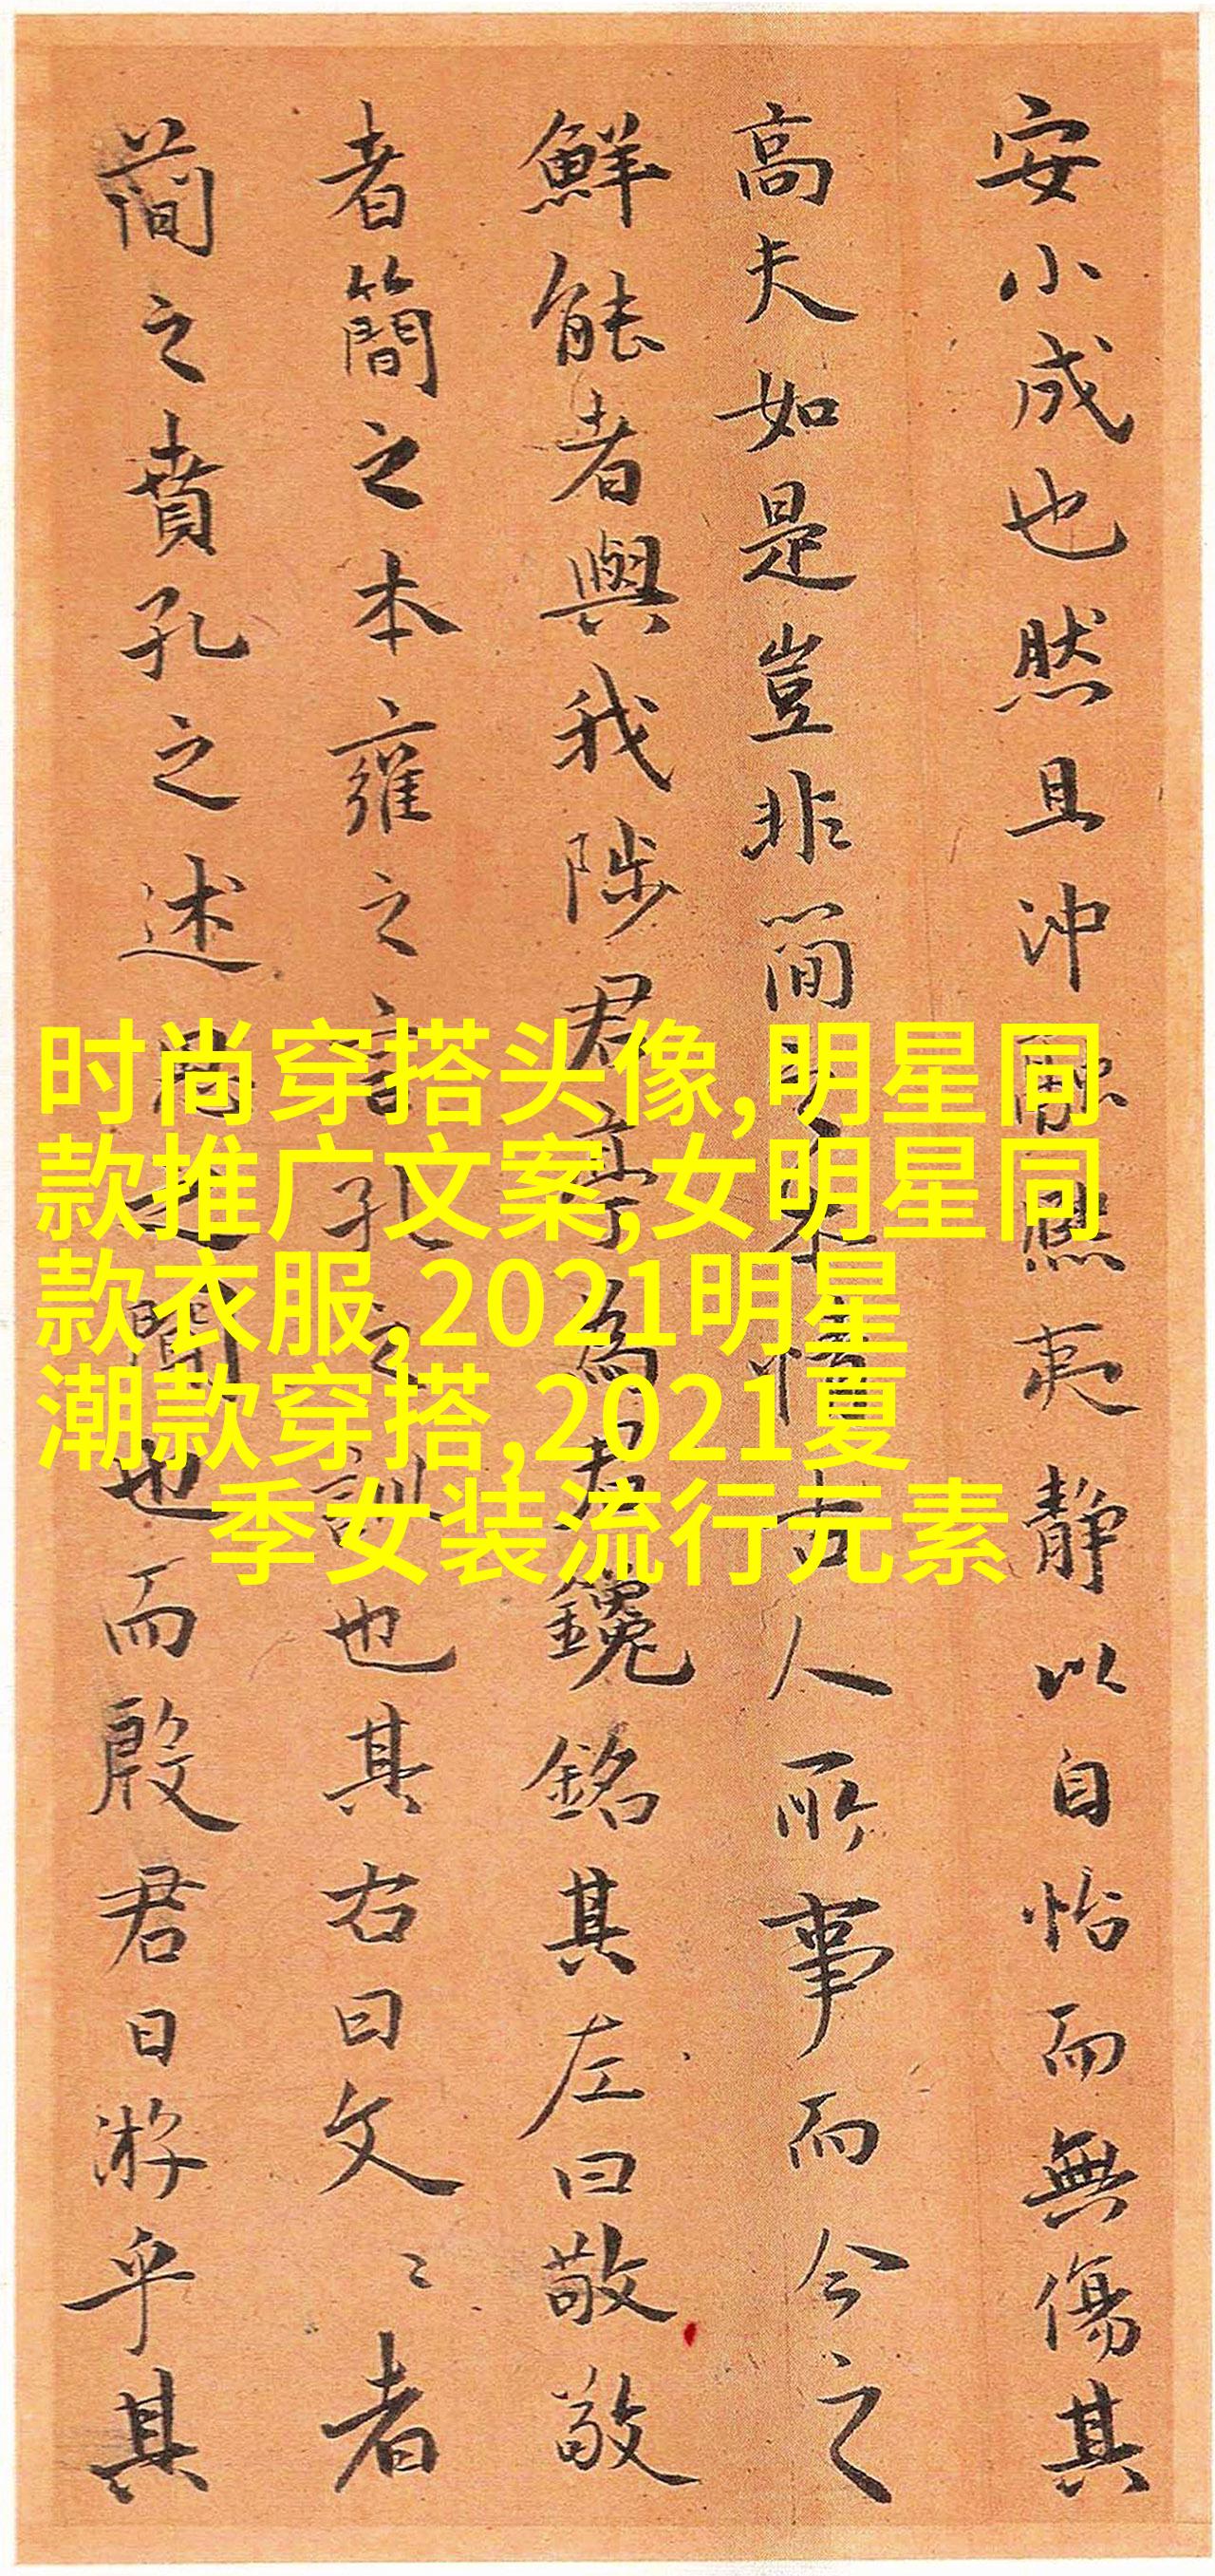 时尚穿搭头像,明星同
款推广文案,女明星同
款衣服,2021明星
潮款穿搭,2021夏
季女装流行元素
安小成也然且冲融熙夷静以自怡而無傷其
高夫如是豈非簡人所事而今之
鮮能者與我陟君亭為君鑱銘其左曰敬敬
者簡之本雍之言孔之訓也其右曰文〻者
簡之賁孔之述也而殷君日游乎其